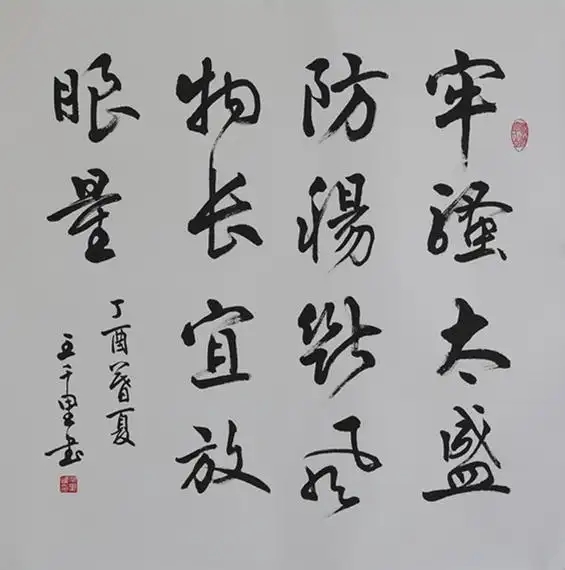 牢骚太盛
防腸断风
物长宜放
眼量
丁酉暮夏
王千里书